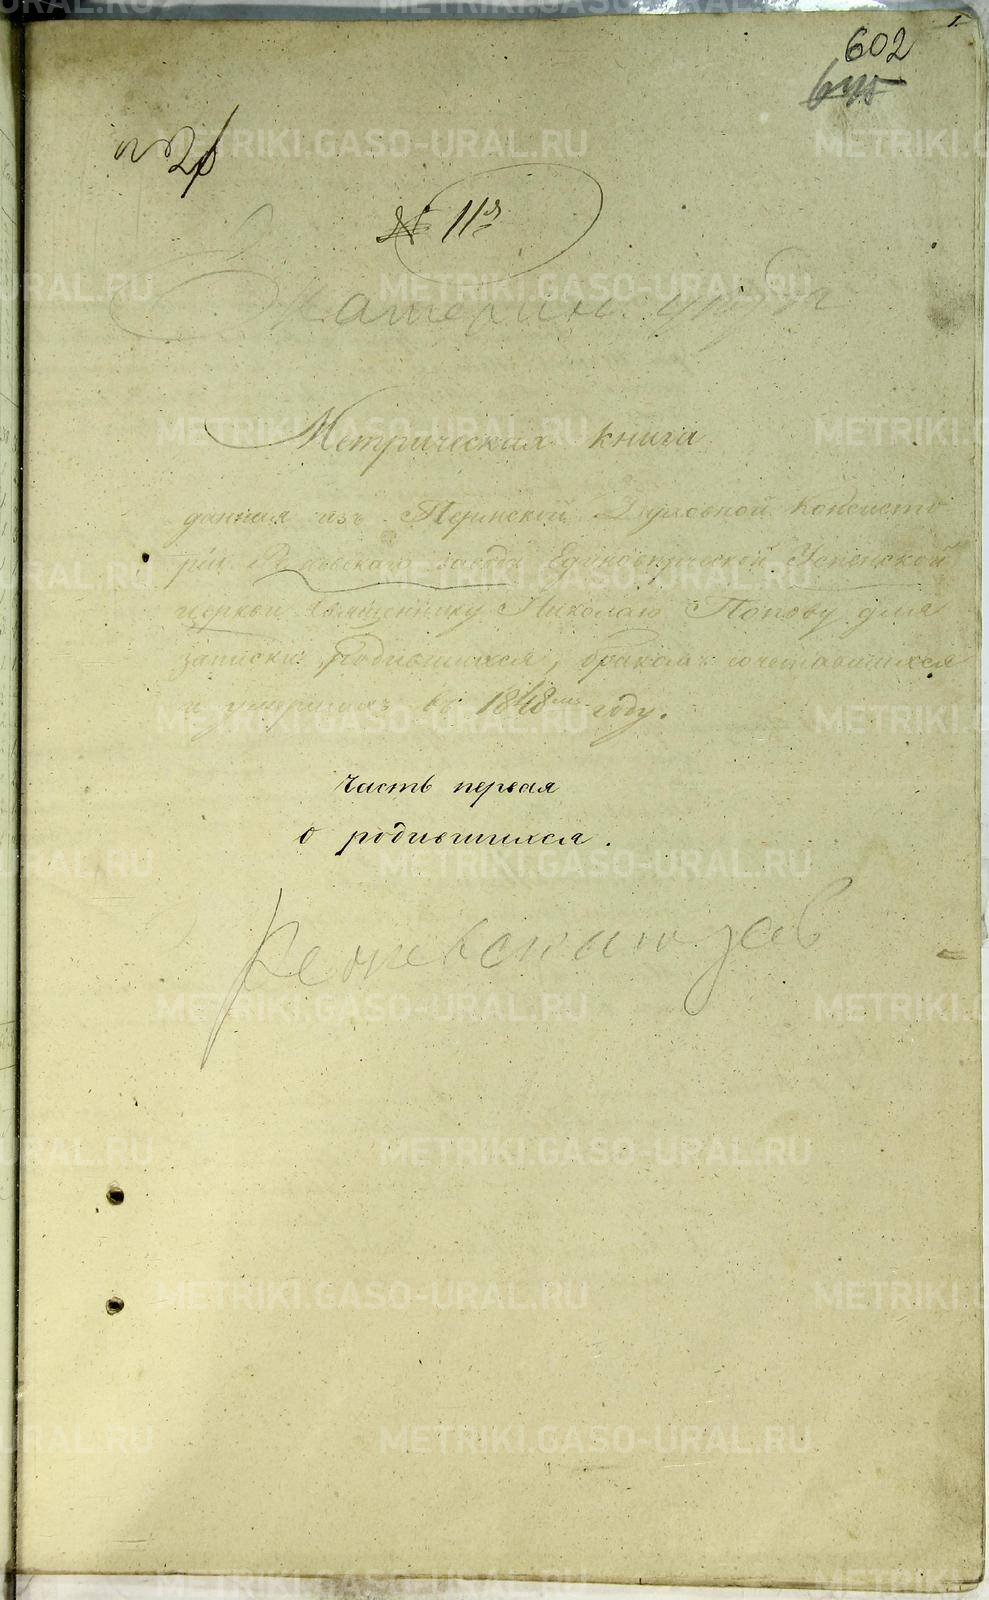 1.
602
645
№ 26
№ 11й
Екатеринб. уезда
Метрическая книга
данная изъ Пермской Духовной Консисто
ріи Режевскаго завода Единоверческой Успенской
церкви Священнику Николаю Попову для
записки родившихся, бракомъ сочетавшихся
и умершихъ въ 1848мъ году.
Часть первая
о родившихся.
Режевскаго зав
METRIKI.GASO-URAL.RU